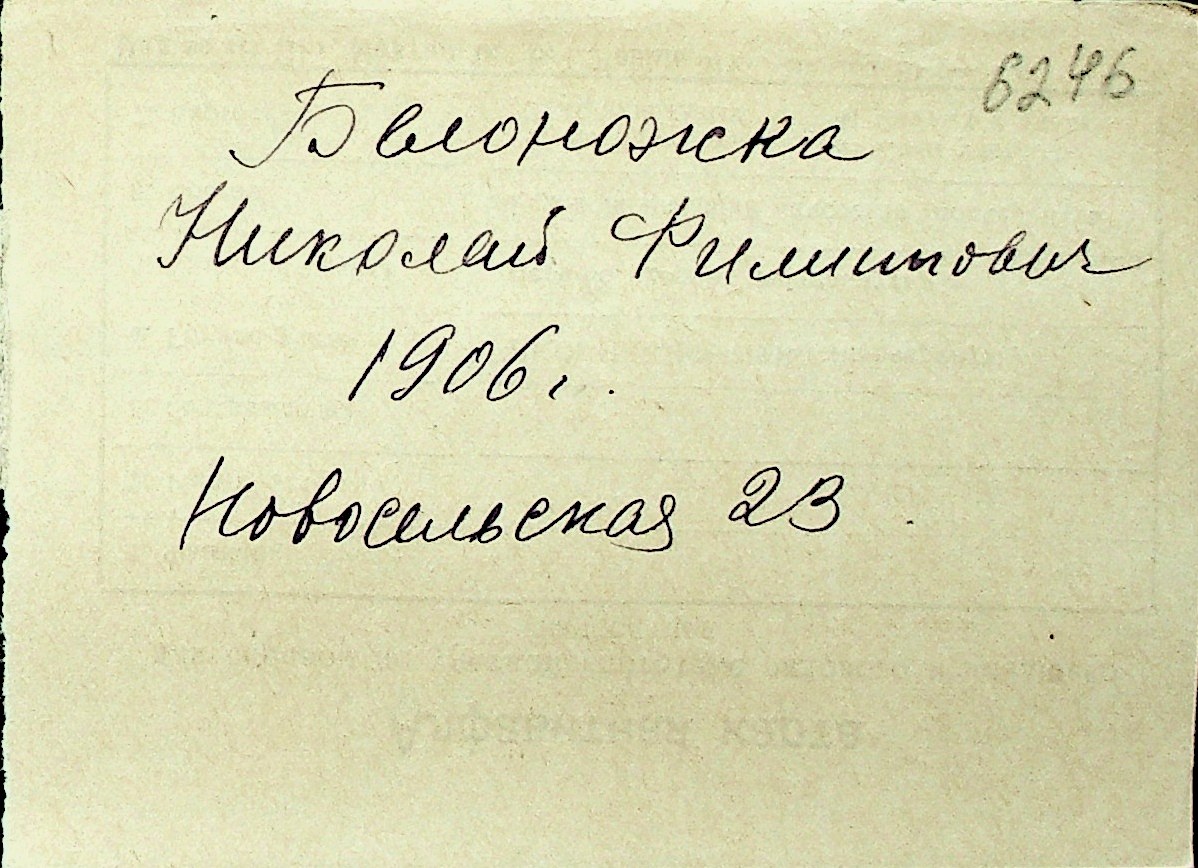 6246
Белоножка
Николай Филиппович
1906 г.
Новосельская 23